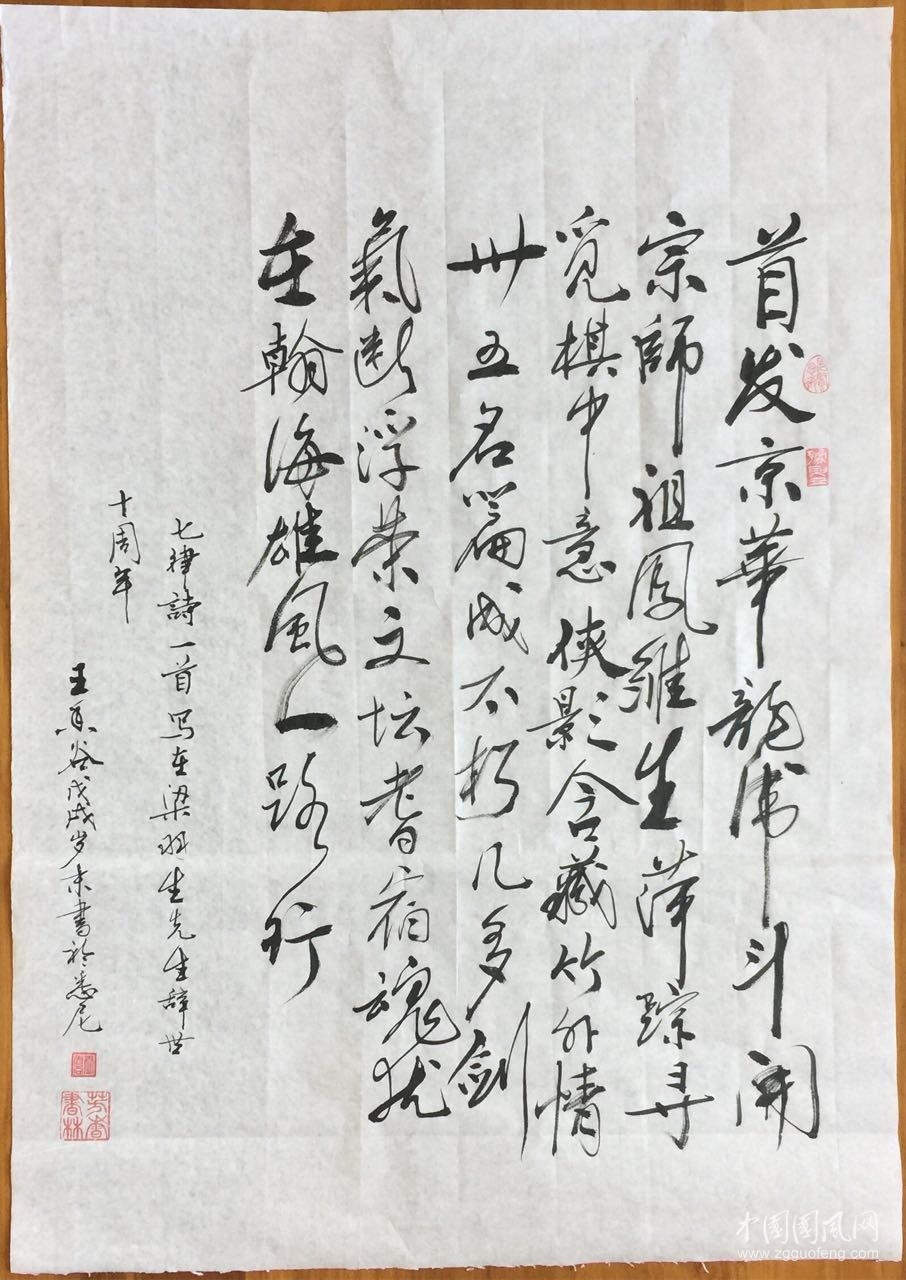 首发京華龍虎斗開
宗師祖鳳雏生萍踪寻
覓棋中意俠影含藏竹外情
卅五名篇成不朽几多剑
氣断浮荣文坛耆宿魂犹
在翰海雄風一路行
七律詩一首写在梁羽生先生辞世
十周年
王谷戊戌岁末書於悉尼
芳香書林
中国國风网
www.zgguofeng.com